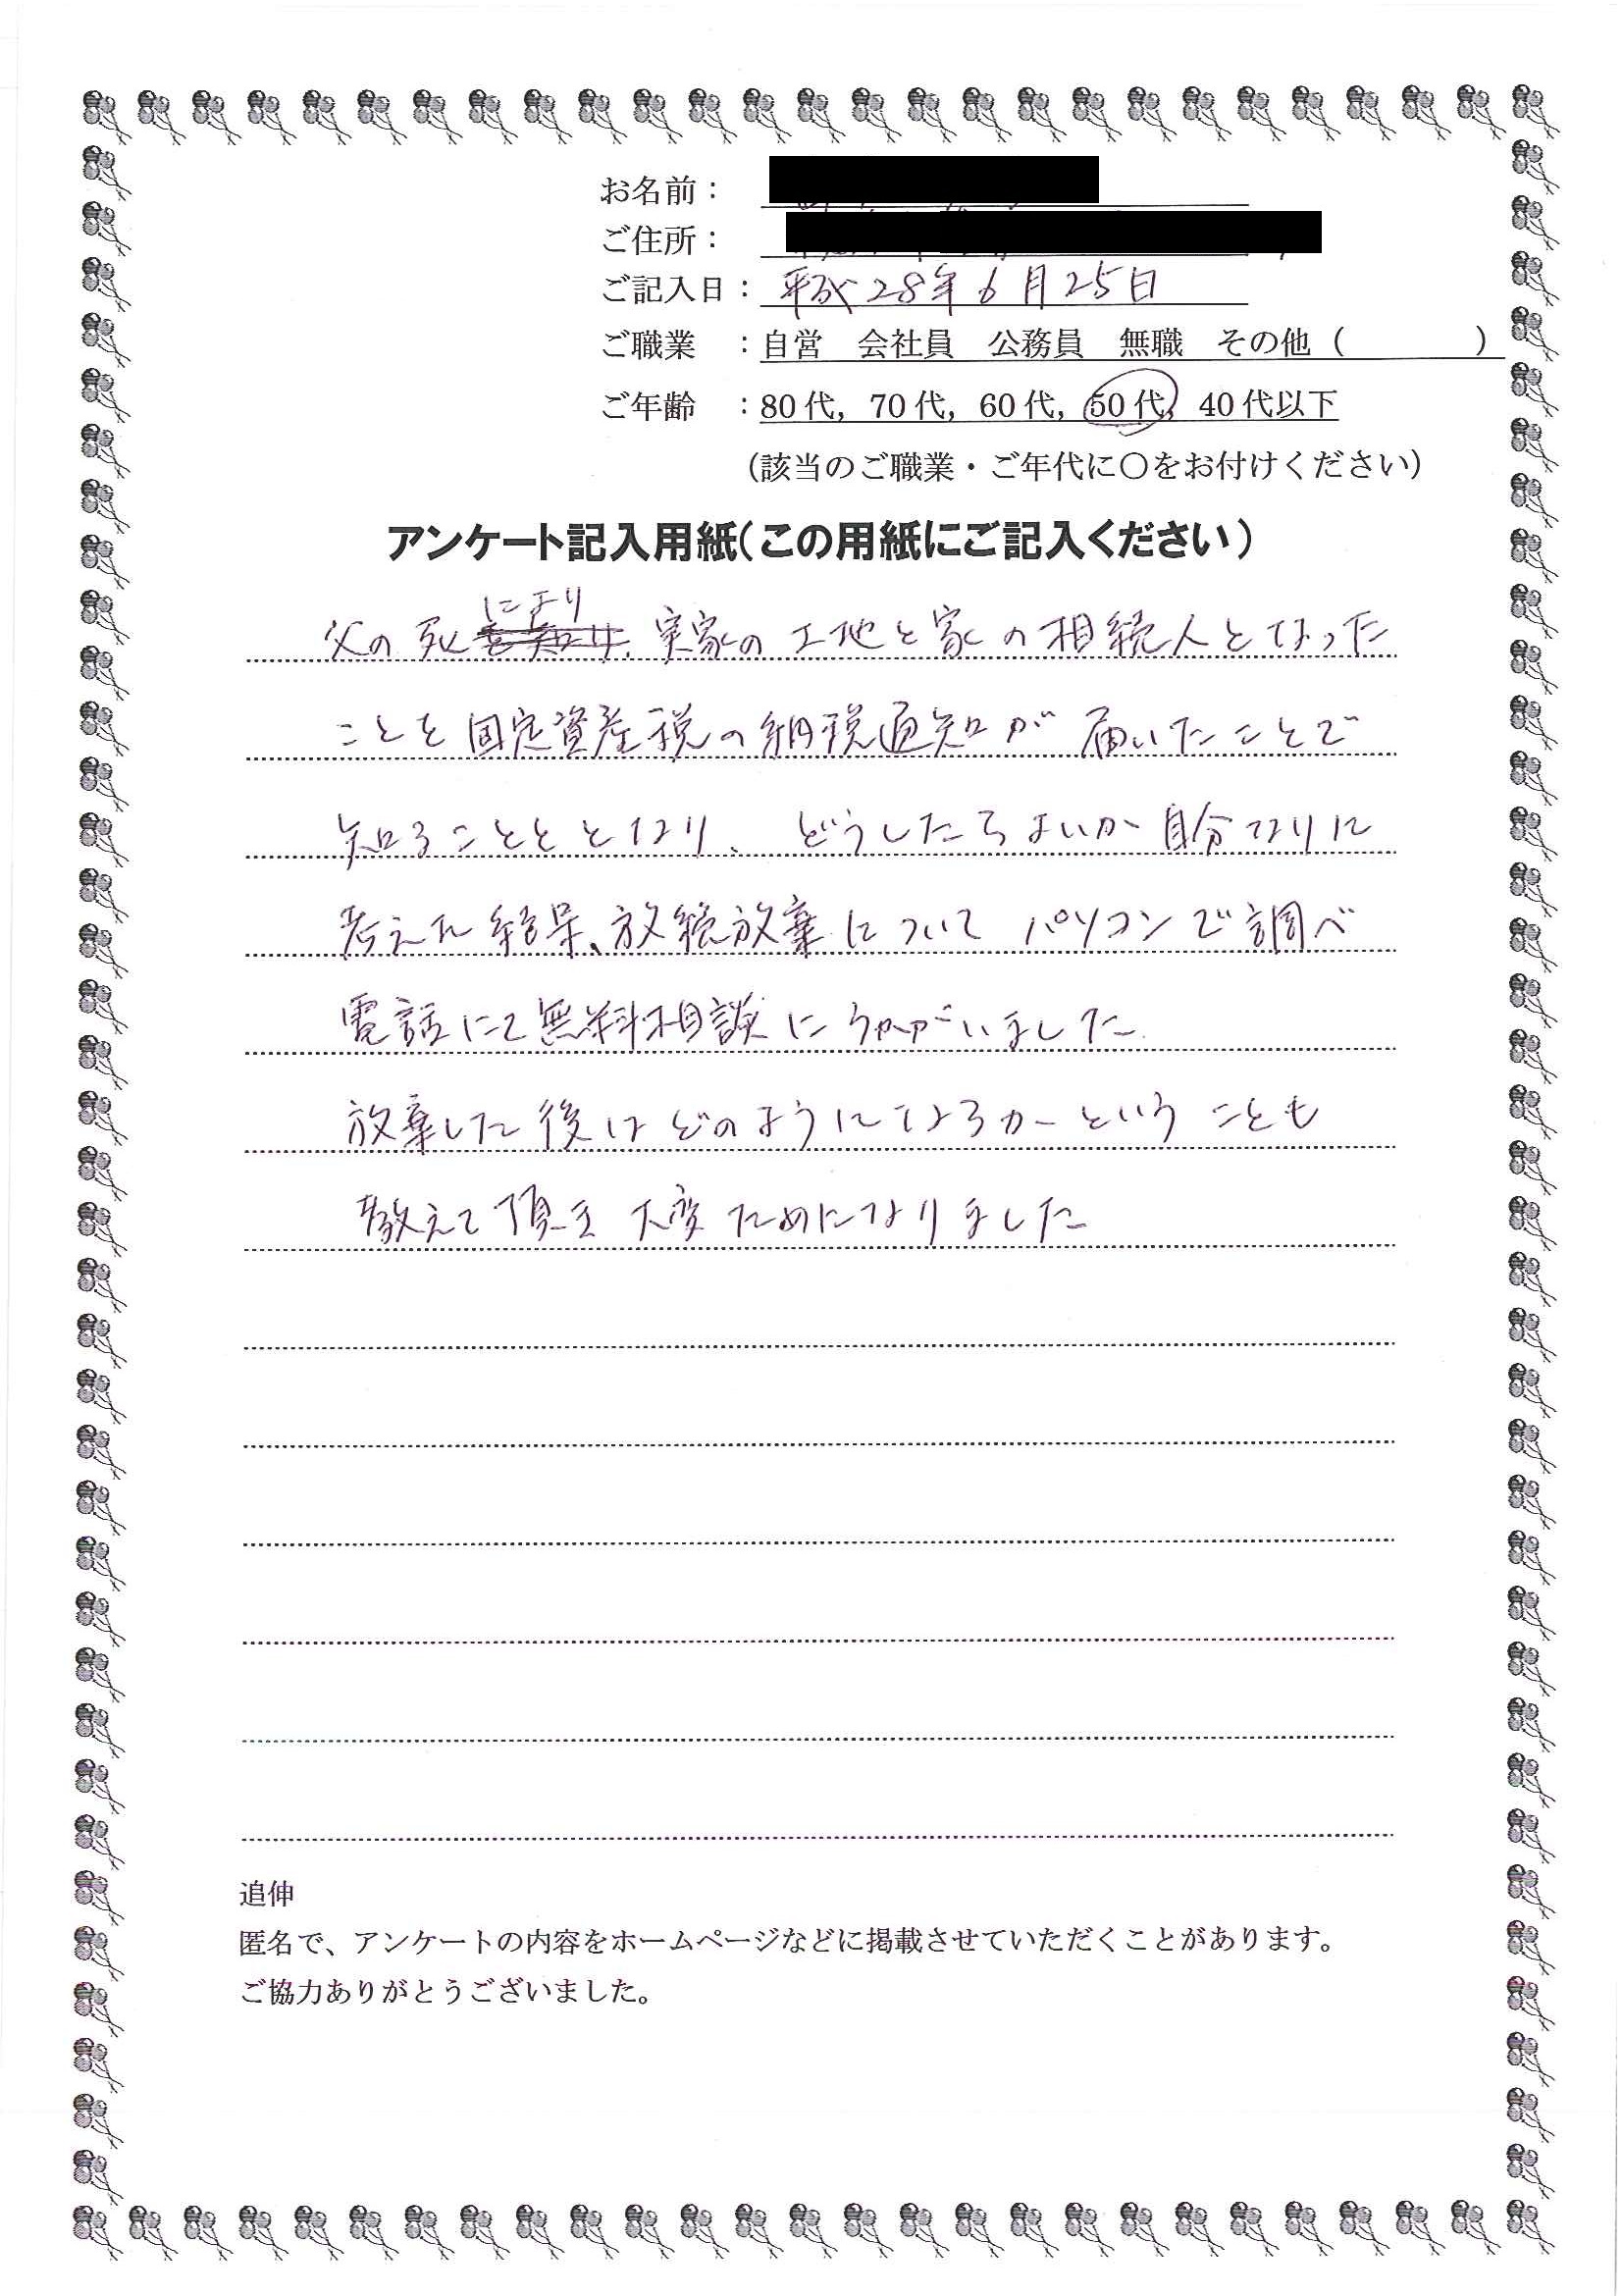 お名前：
ご住所：
ご記入日：平成28年6月25日
ご職業　：自営　会社員　公務員　無職　その他（　　　　）
ご年齢　：80代，70代，60代，50代，40代以下
（該当のご職業・ご年代に〇をお付けください）
アンケート記入用紙（この用紙にご記入ください）
により
父の死を知り、実家の土地と家の相続人となった
ことを固定資産税の納税通知が届いたことで
知ることととなり、どうしたらよいか自分なりに
考えた結果、放続放棄についてパソコンで調べ
電話にて無料相談にうかがいました
放棄した後はどのようになるかーということも
教えて頂き大変ためになりました
追伸
匿名で、アンケートの内容をホームページなどに掲載させていただくことがあります。
ご協力ありがとうございました。